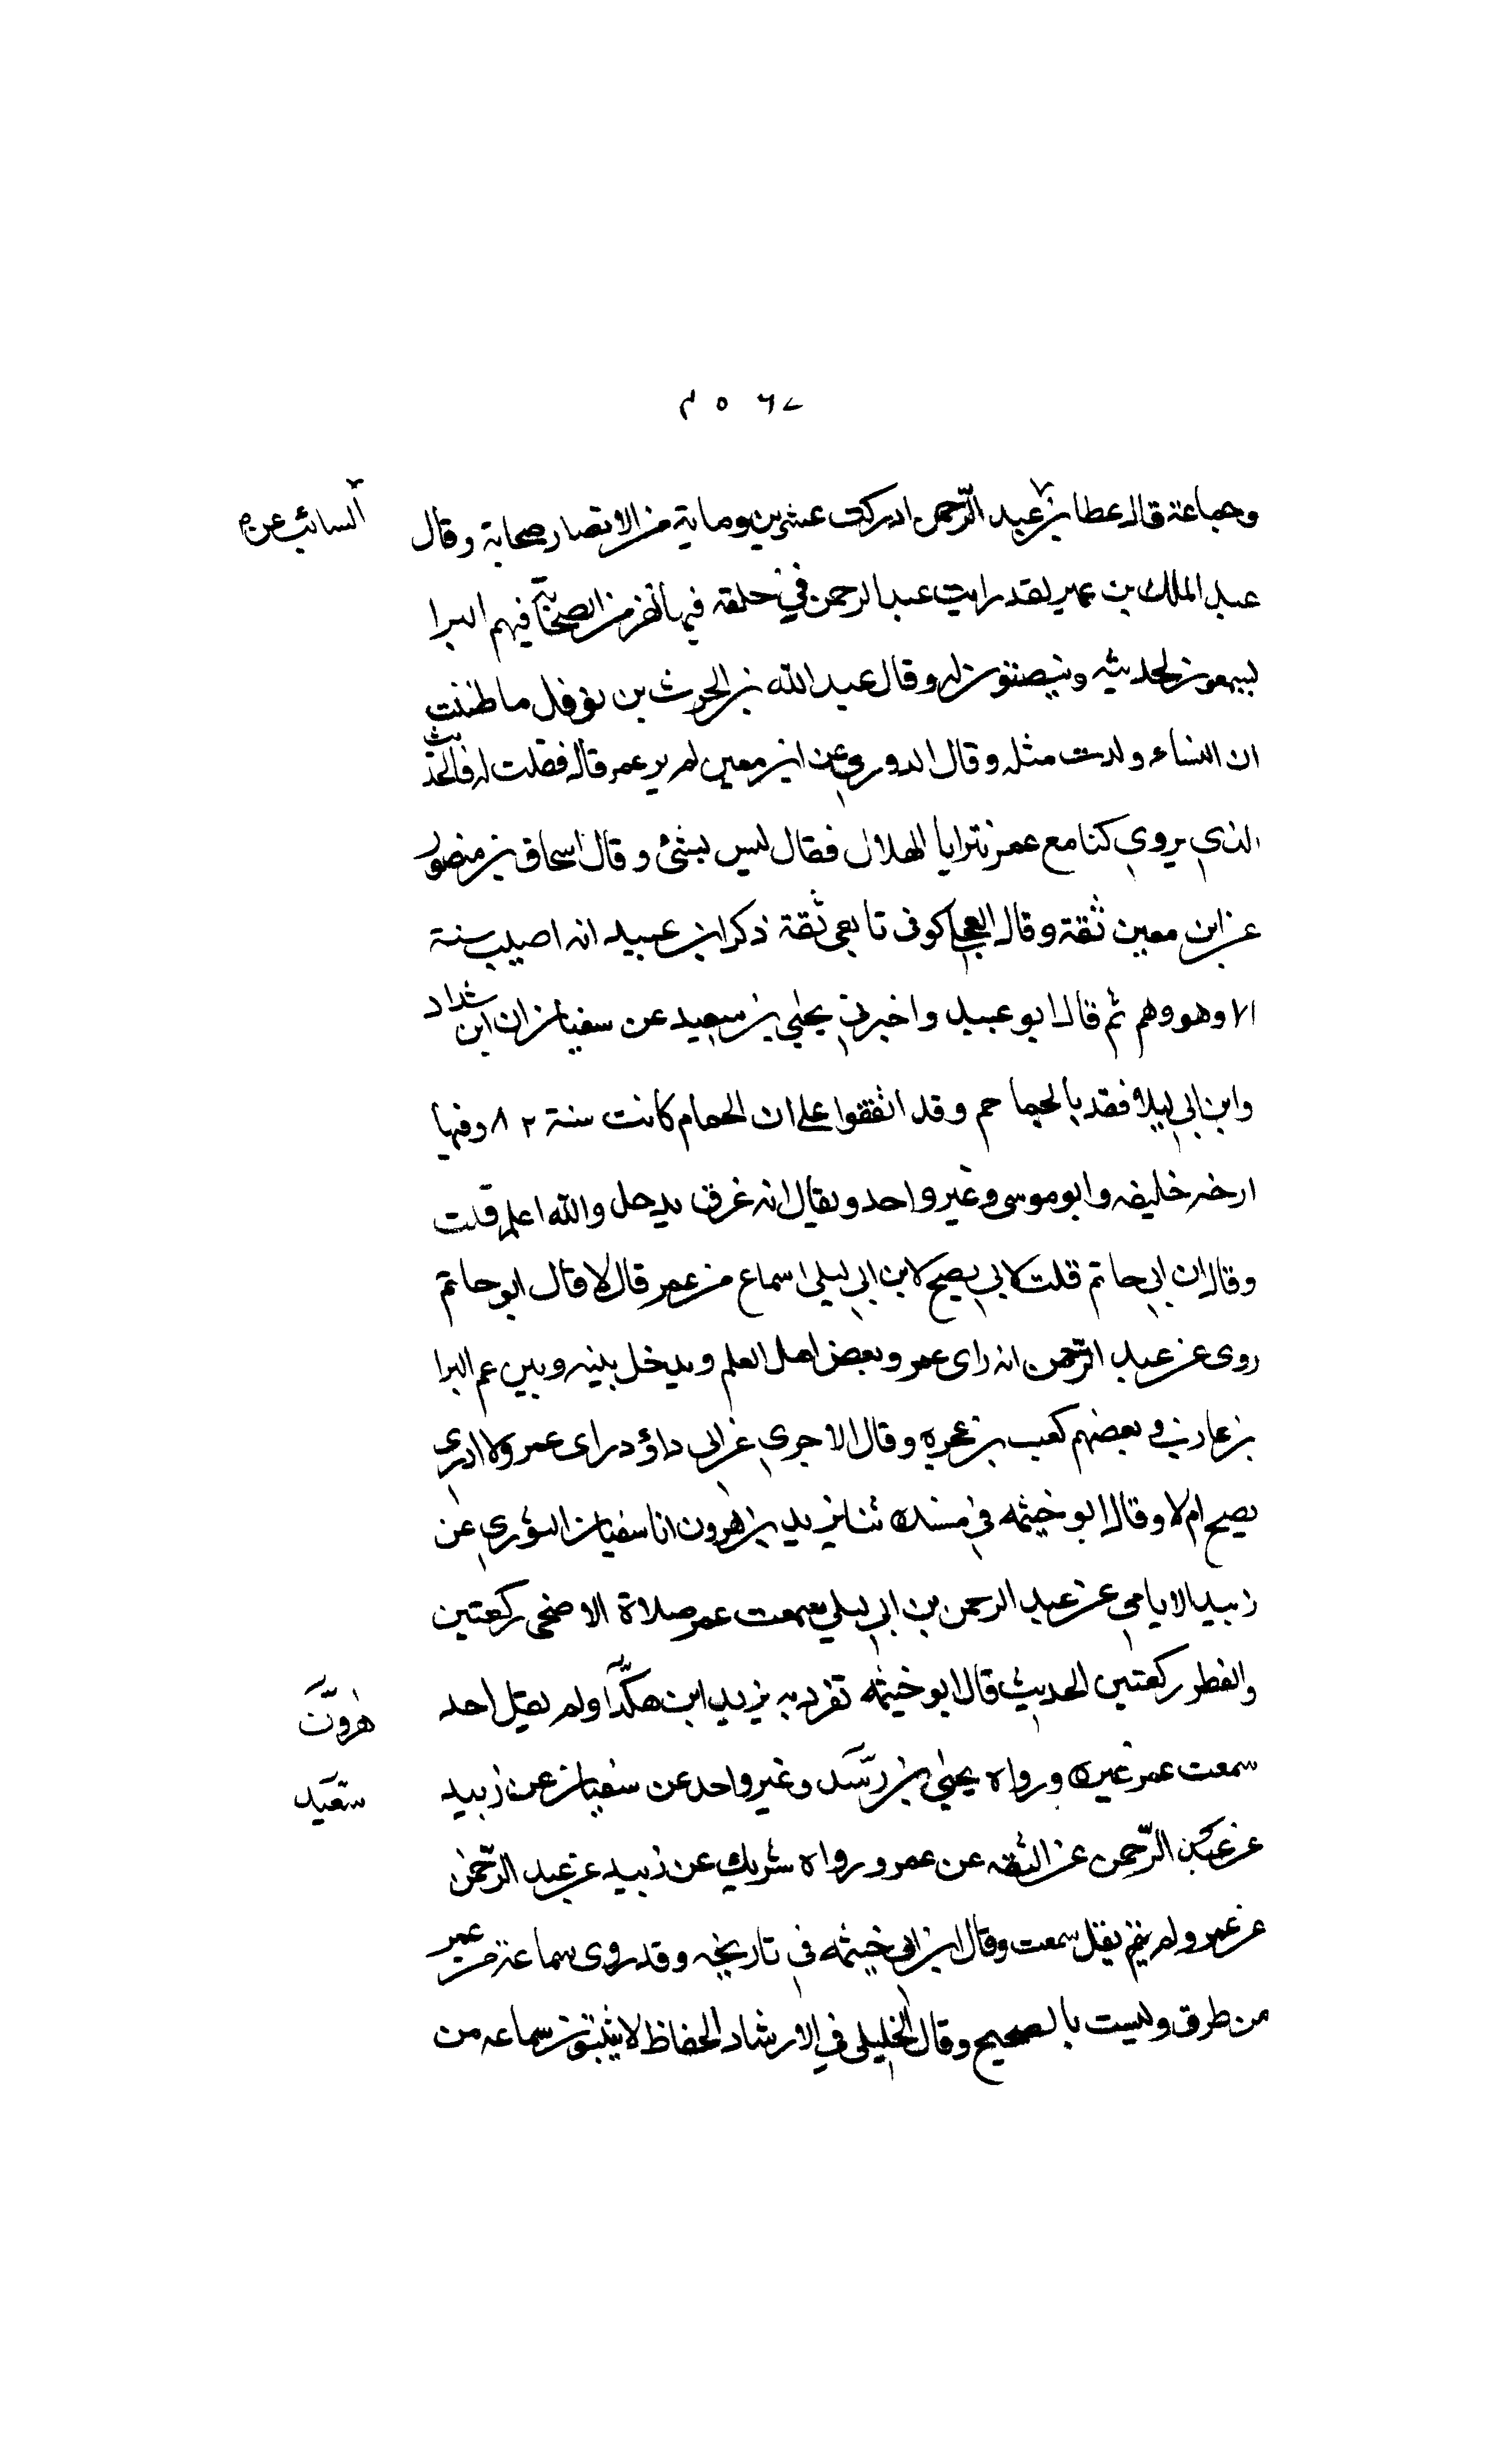 وجماعة قال عطا بن عبد الرحمن ادركت عشرين وماية من الانصار صحابة وقال
السائب عن
عبد الملك بن عمير لقد رايت عبد الرحمن في حلقة فيها نفر من الصحابة فيهم البرا
يسمعون لحديثه وينصتون له وقال عبد الله بن الحرث بن نوفل ما ظننت
ان النساء ولدت مثله وقال الدوري عن ابن معين لم ير عمر قال فقلت له فالحديث
الذي يروي كنا مع عمر نترايا الهلال فقال ليس بشئ وقال اسحاق بن منصور
عن ابن معين ثقة وقال العجلي كوفى تابعى ثقة ذكر ابن عبيد انه اصيب سنة
الا وهو وهم ثم قال ابو عبيد واخبرني يحيى بن سعيد عن سفيان ان ابن شداد
وابن ابي ليلا فقد بالجماحم وقد اتفقوا على ان الحمام كانت سنة ٨٢ وفيها
ارخه خليفه وابو موسى وغير واحد ويقال انه غرق بدجل والله اعلم قلت
وقال ابن ابي حاتم قلت لابي يصح لابن ابي ليلى اسماع من عمر قال لا قال ابو حاتم
روى عن عبد الرحمن انه راى عمر وبعض اهل العلم ويدخل بينه وبين عمر البرا
بن عازب وبعضهم كعب بن عجره وقال الاجري عن ابى داؤد راى عمر ولا ادري
يصح ام لا وقال ابو خيثمه في مسنده ثنا يزيد بن هرون انا سفيان الثوري عن
زبيد الايامي عن عبد الرحمن بن ابي ليلي سمعت عمر صلاة الاضحى ركعتين
والفطر ركعتين الحديث قال ابو خيثمه تفرد به يزيد ابن هكذا ولم يقل احد
هرون
سمعت عمر غيره ورواه يحيى بن رسد وغير واحد عن سفيان عن زبيد
سعيد
عن عبد الرحمن عن الثقه عن عمر ورواه شريك عن زبيد عن عبد الرحمن
عن عمر ولم يقل سمعت وقال ابن ابي خيثمه في تاريخه وقد روى سماعة من عمر
من طرق وليست بالصحيح وقال الخليلي في الارشاد الحفاظ لا يثبتون سماعه من